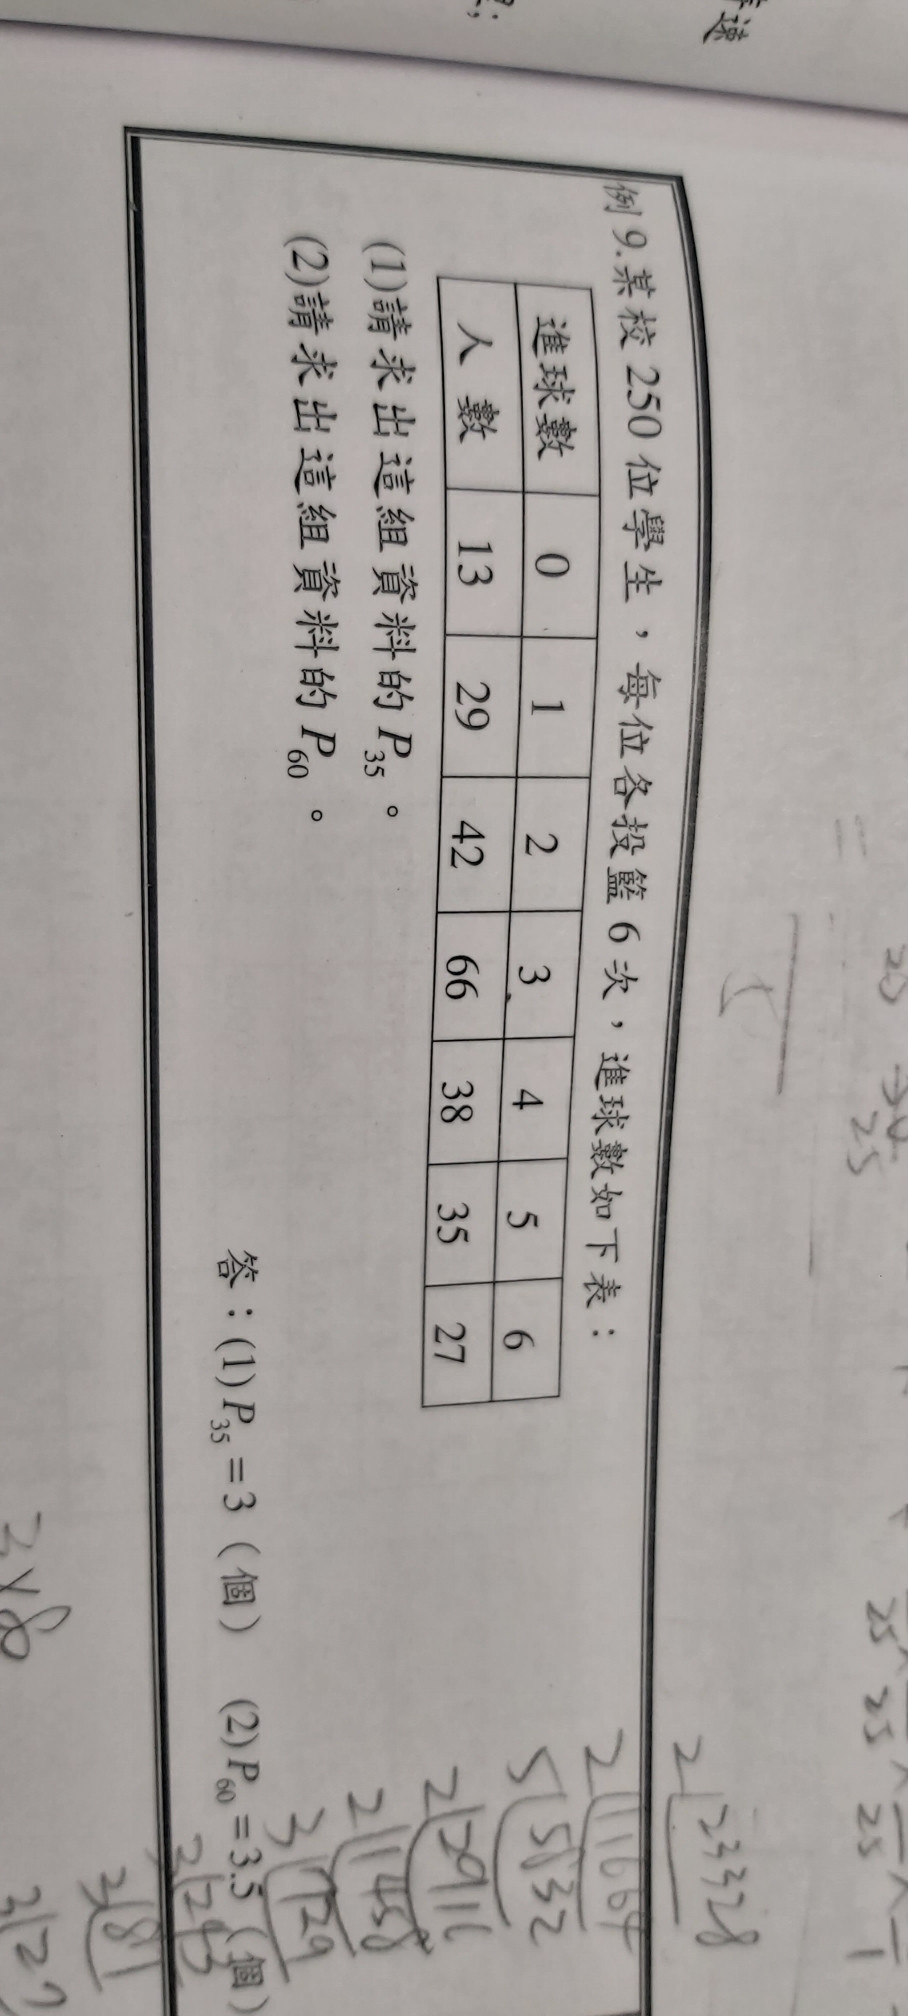 時速
例 9.某校 250 位學生，每位各投籃 6 次，進球數如下表：
進球數 0 1 2 3 4 5 6
人 數 13 29 42 66 38 35 27
(1)請求出這組資料的 P35。
(2)請求出這組資料的 P60。
答：(1) P35 = 3（個） (2) P60 = 3.5（個）
2 23328
2 11664
5832
2 2916
2 1458
3 729
3 243
3 81
3 27
25
25
25 25 25
3×8